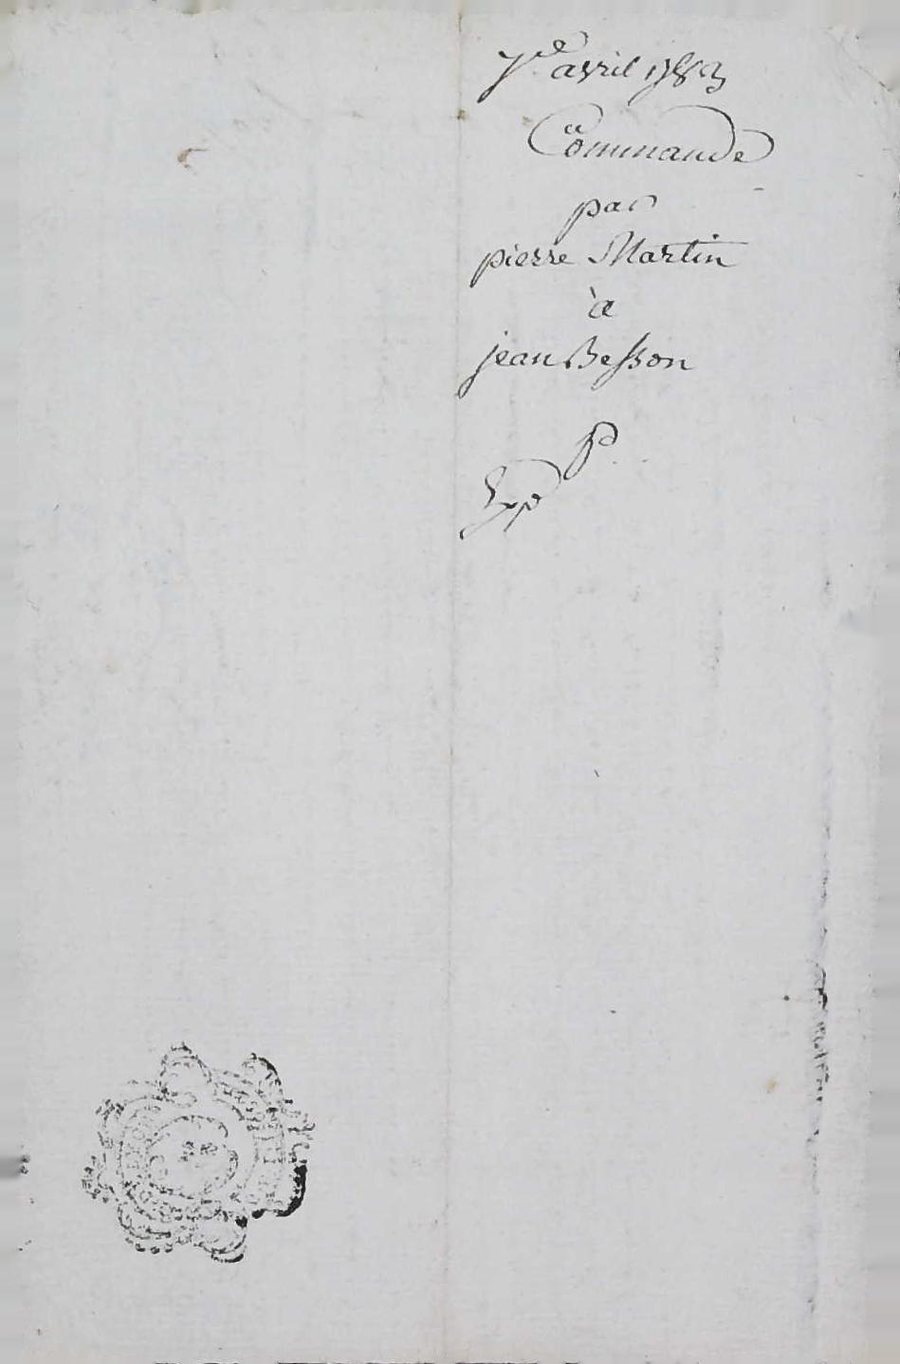 7e avril 1783
Commande
par
pierre Martin
à
jean Besson
p
Expé